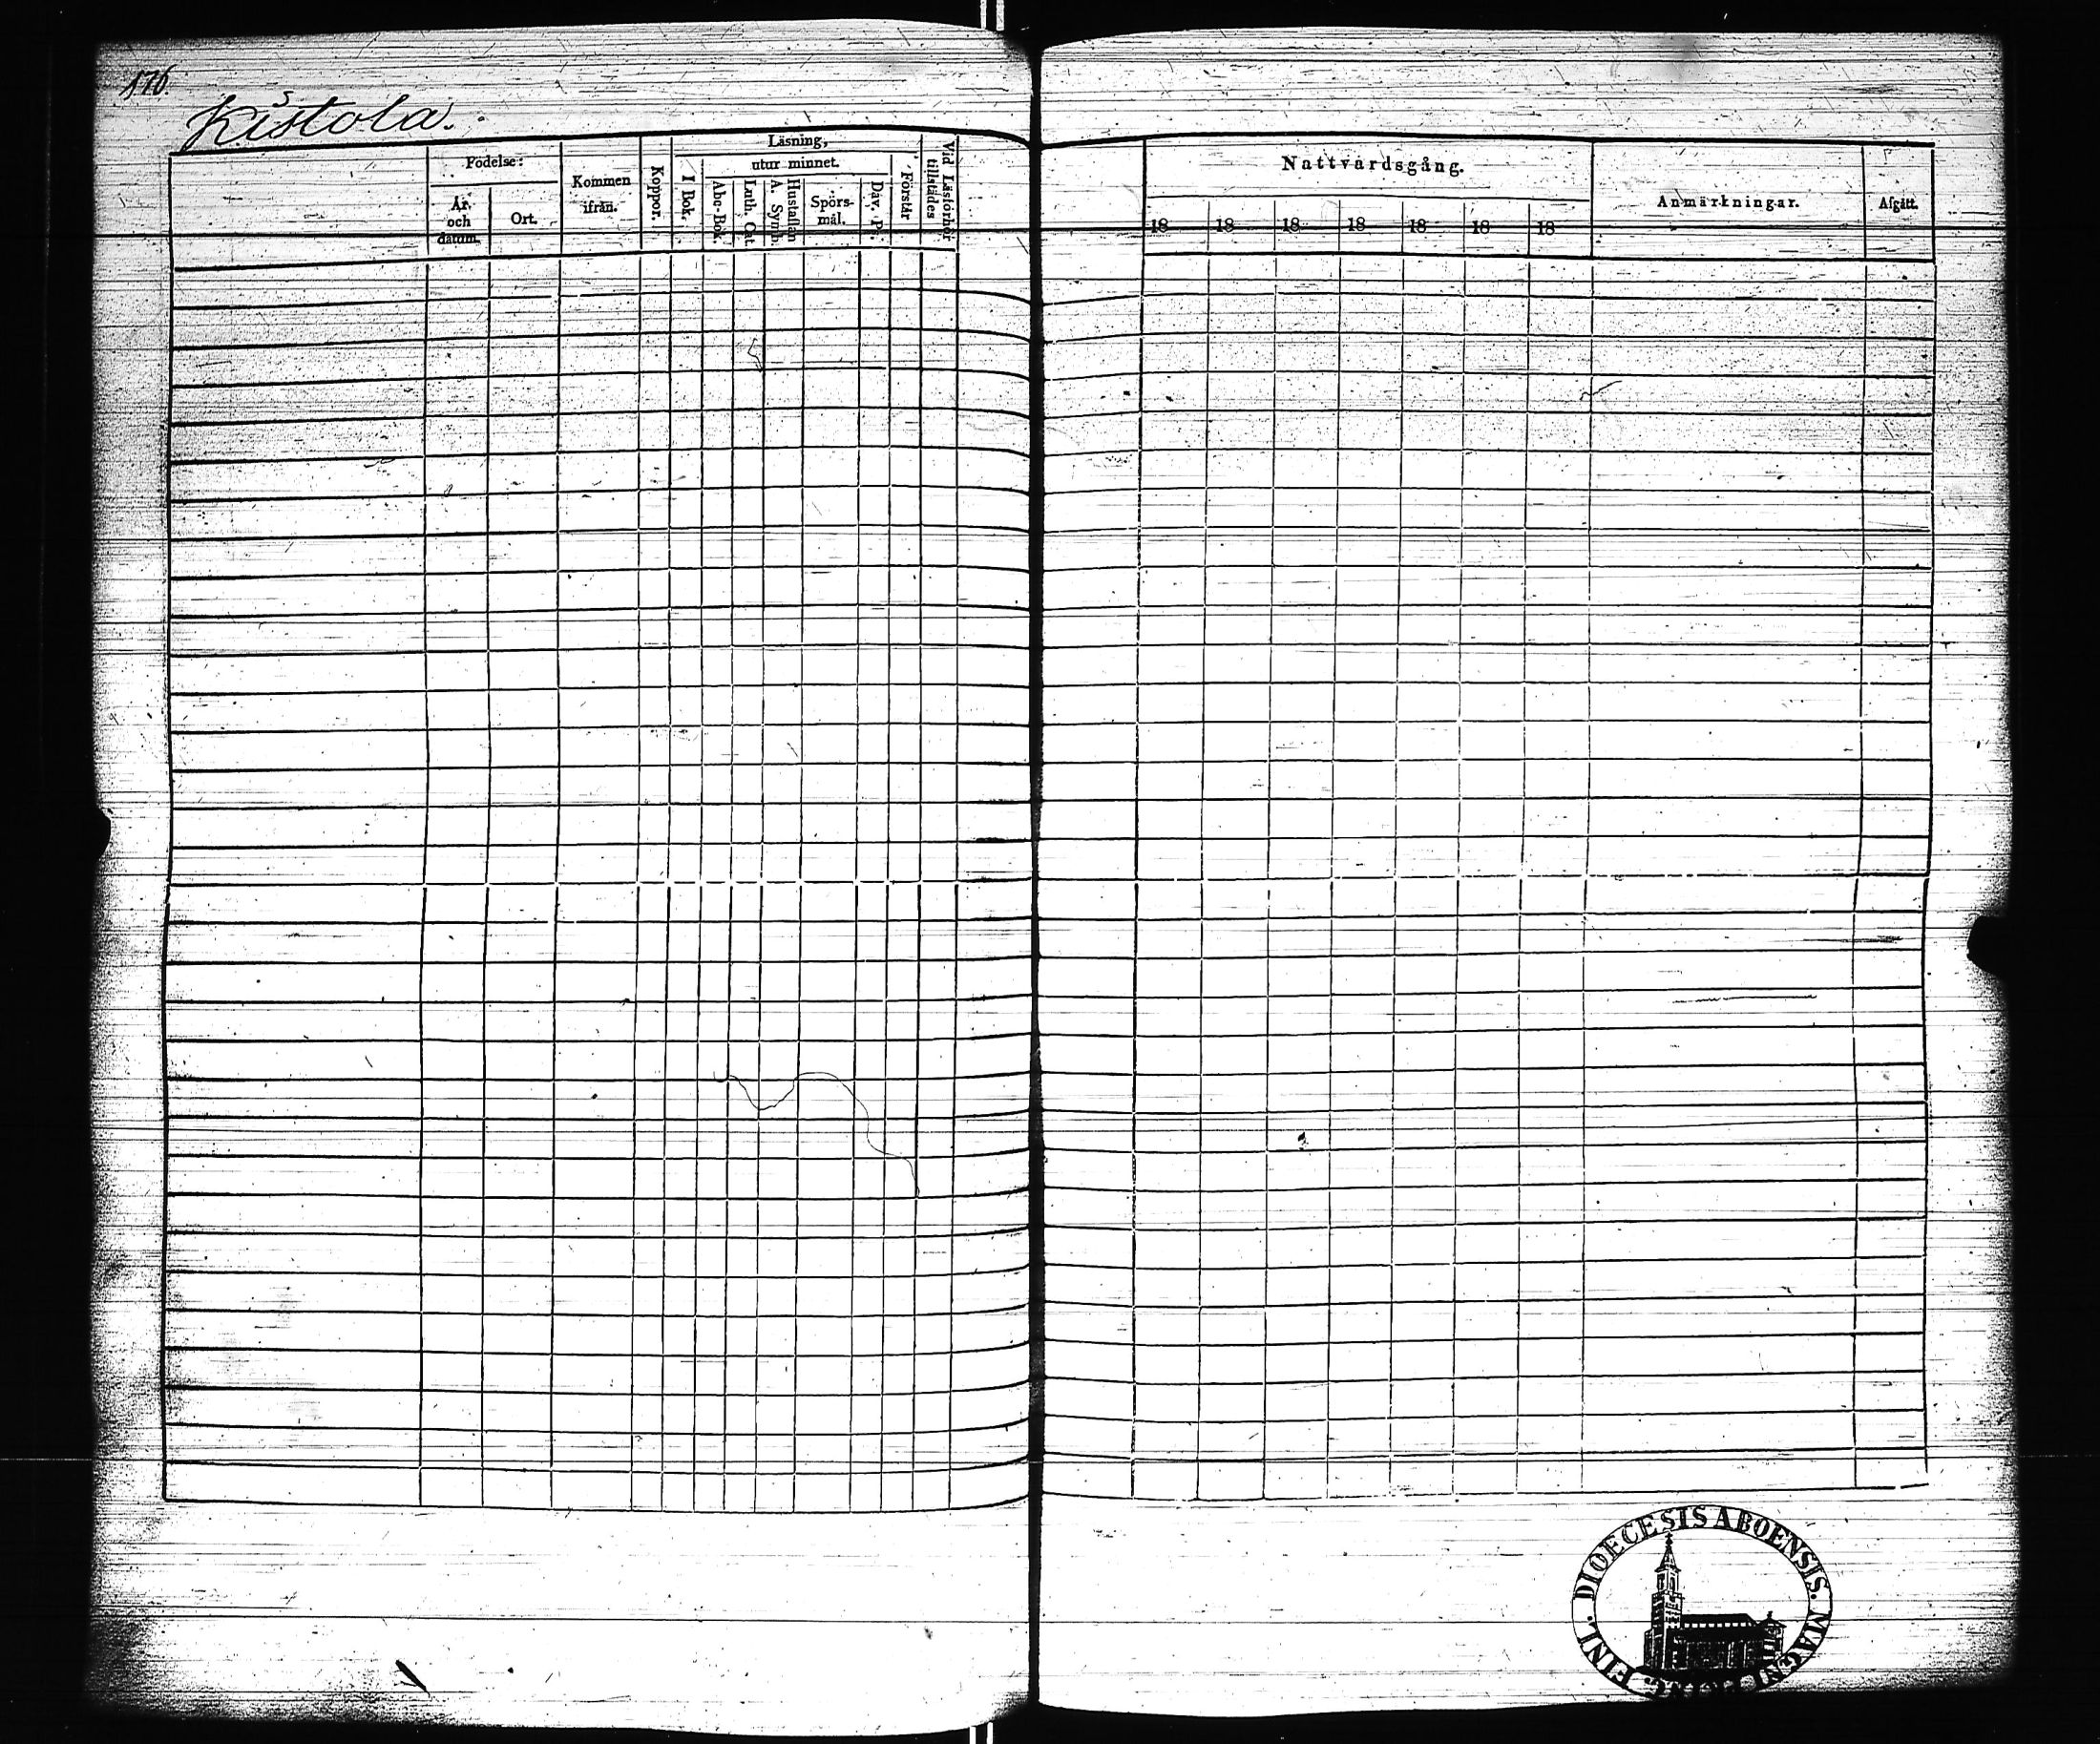 176
Kistola.
Födelse:
År och datum.
Ort.
Kommen ifrån.
Koppor.
Läsning,
I Bok.
utur minnet.
Abc-Bok.
Luth. Cat.
Hustaflan A. Symb.
Spörs-mål.
Dav. Ps.
Förstår
Vid Läsförhör tillstädes
Nattvardsgång.
18 18 18 18 18 18 18
Anmärkningar.
Afgått.
DIOECESIS ABOENSIS. MAGNI FINL.